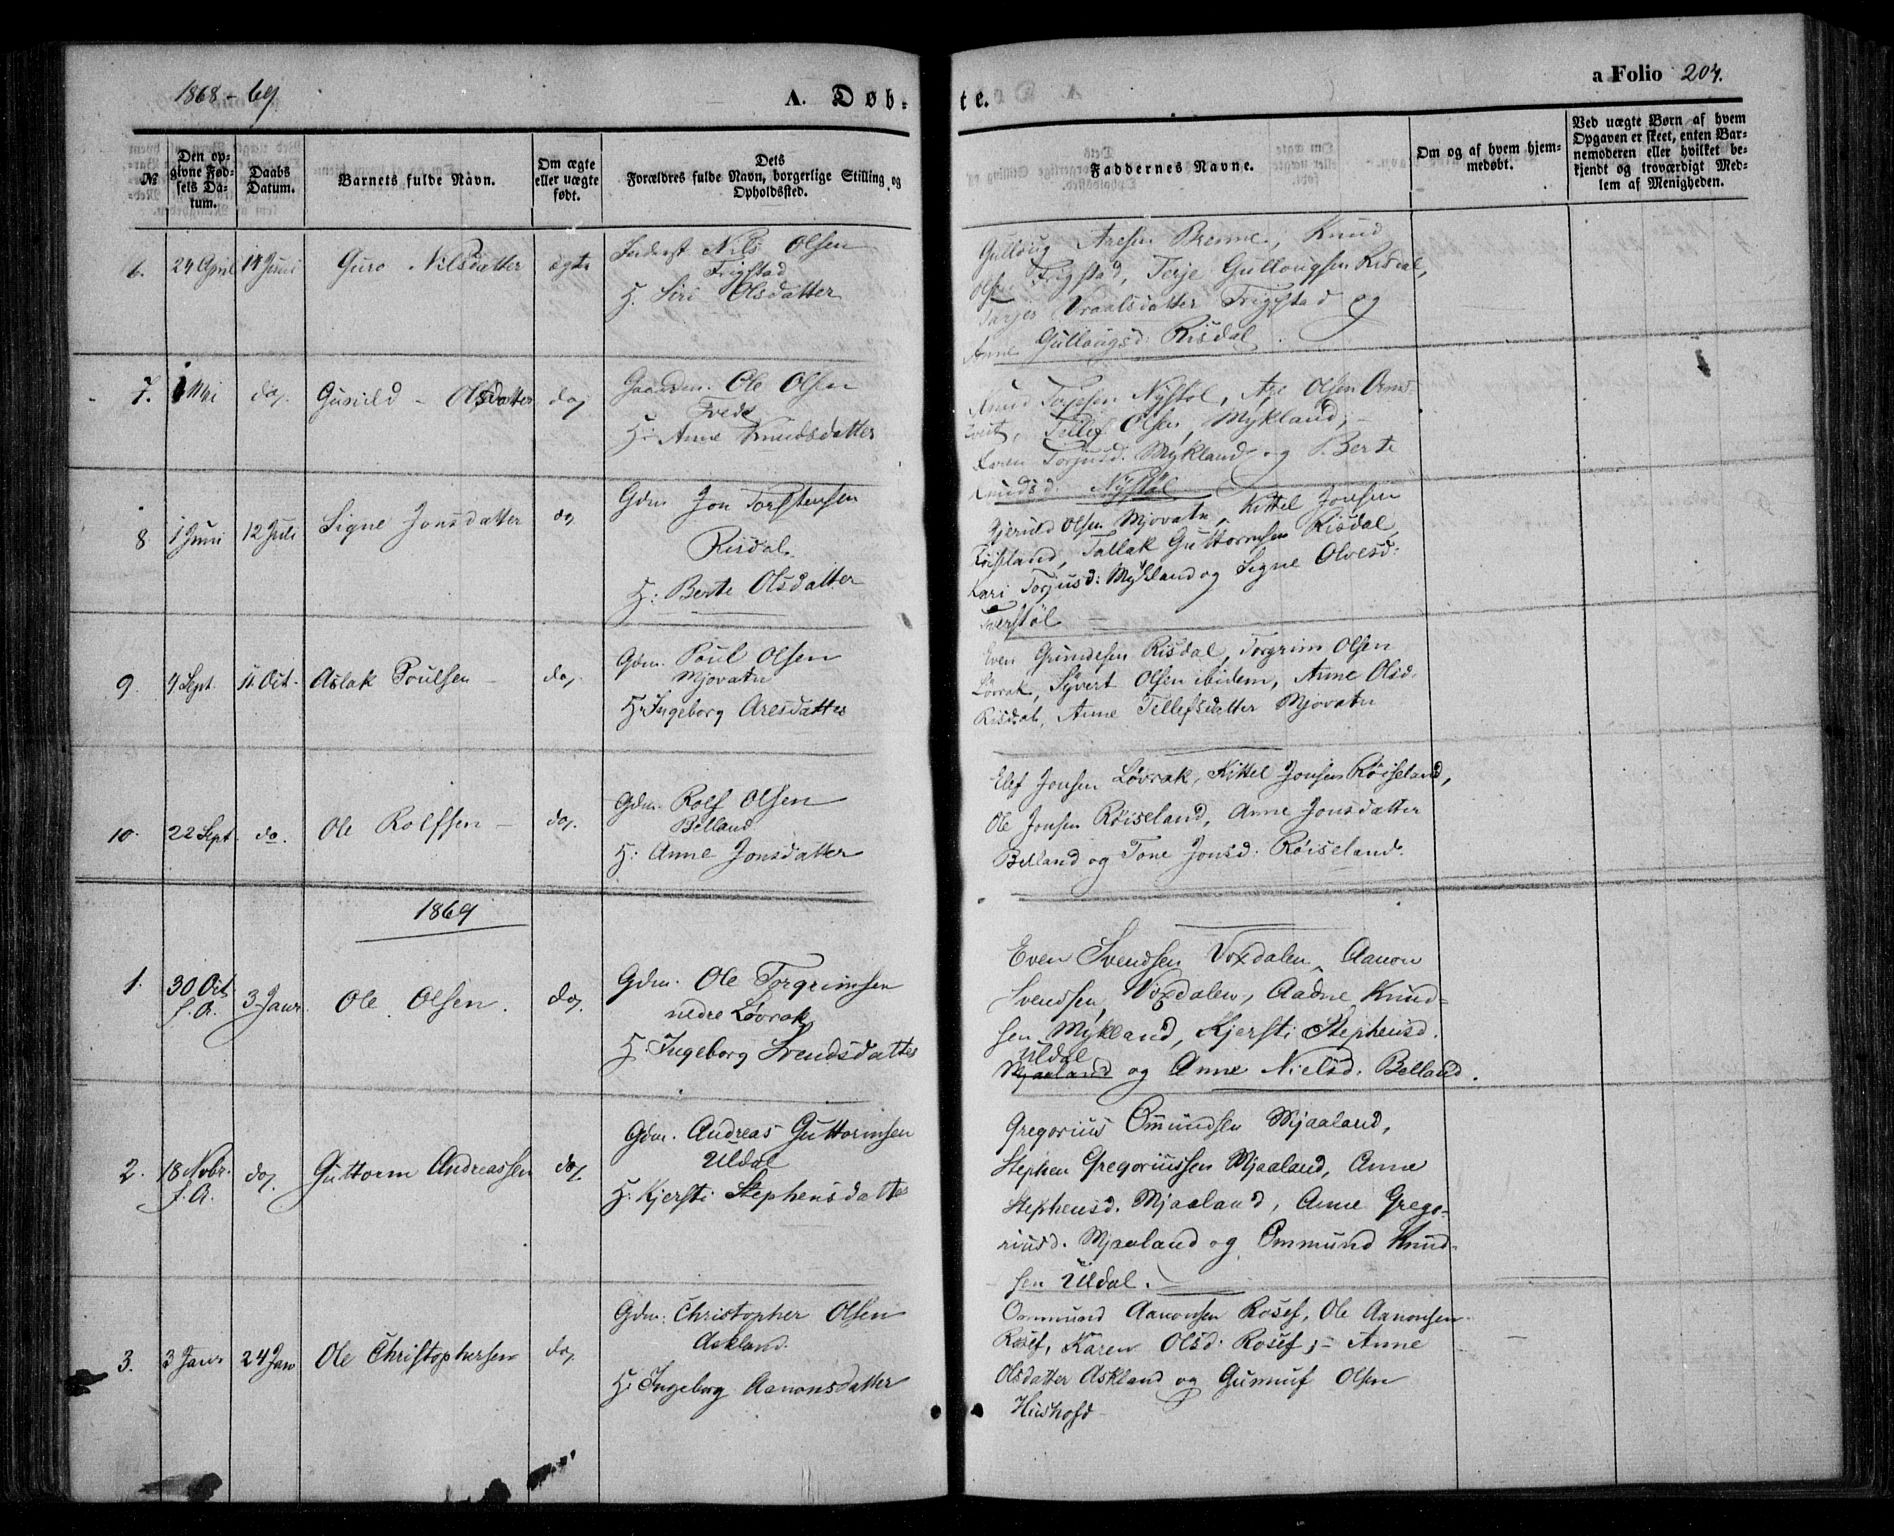 1868-69
A. Døb-
te.
a Folio 204.
№
Den op-
givne Fød-
sels Da-
tum.
Daabs
Datum.
Barnets fulde Navn.
Om ægte
eller uægte
født.
Dets
Forældres fulde Navn, borgerlige Stilling og
Opholdssted.
Faddernes Navne.
Om og af hvem hjem-
medøbt.
Ved uægte Børn af hvem
Opgaven er skeet, enten Bar-
nemoderen eller hvilket be-
kjendt og troværdigt Med-
lem af Menigheden.
6. 24 April 14 Juni Guro Nilsdatter ægte
Inderst Nils Olsen
Frigstad
H. Siri Olsdatter
Gulloug Aresen Brenne, Knud
Olsen Frigstad, Terje Gullougsen Risdal,
Tarjer Vraalsdatter Frigstad og
Anne Gullougsd: Risdal.
7. 1 Mai do, Gunild - Olsdatter do,
Gaardm. Ole Olsen
Tvede
H: Anne Knudsdatter
Knud Torjesen Nystøl, Age Olsen Orms-
tveit, Tellef Olsen, Mykland,
Karen Torjusd. Mykland og Berte
Knudsd: Nystøl
8 1 Juni 12 Juli Signe Jonsdatter do,
Gdm Jon Torstensen
Risdal.
H: Berte Olsdatter
Gjeruld Olsen Mjovatn, Kittel Jonsen
Røiseland, Tallak Guttormsen Risdal,
Kari Torjusd: Mykland og Signe Olvesd:
Tverstøl
9. 4 Sept. 11 Oct. Aslak Poulsen do,
Gdm. Poul Olsen
Mjovatn
H. Ingeborg Aresdatter
Even Grundesen Risdal, Torgrim Olsen
Løvrak, Syvert Olsen ibidem, Anne Olsd.
Risdal, Anne Tellefsdatter Mjovatn
10. 22 Sept. do. Ole Rolfsen do,
Gdm. Rolf Olsen
Belland
H: Anne Jonsdatter
Elef Jonsen Løvrak, Kittel Jonsen Røiseland,
Ole Jonsen Røiseland, Anne Jonsdatter
Belland og Tone Jonsd: Røiseland.
1869
1. 30 Oct. f. A. 3 Janr. Ole Olsen. do,
Gdm. Ole Torgrimsen
nedre Løvrak
H. Ingeborg Svendsdatter
Even Svendsen Voxdalen, Aanon
Svendsen, Voxdalen, Aadne Knud-
sen Mykland, Kjersti Stephensd.
Uldal
Mjaaland og Anne Nielsd: Belland.
2. 18 Novbr. f. A. do, Guttorm Andreassen do,
Gdm. Andreas Guttormsen
Uldal
H: Kjersti Stephensdatter
Gregorius Omundsen Mjaaland,
Stephen Gregoriussen Mjaaland, Anne
Stephensd. Mjaaland, Anne Grego-
riusd. Mjaaland og Ommund Knud-
sen Uldal.
3. 3 Janr 24 Jan Ole Christophersen do,
Gdm: Christopher Olsen
Askland.
H: Ingeborg Aanonsdatter
Ommund Aanonsen Rosef, Ole Aanonsen
Rosef, Karen Olsd: Rosef, Anne
Olsdatter Askland og Gunnuf Olsen